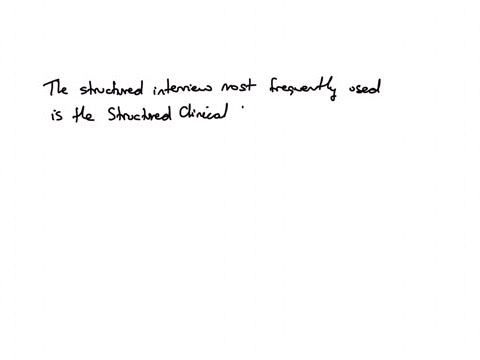 The structured interview most frequently used
is the Structured Clinical